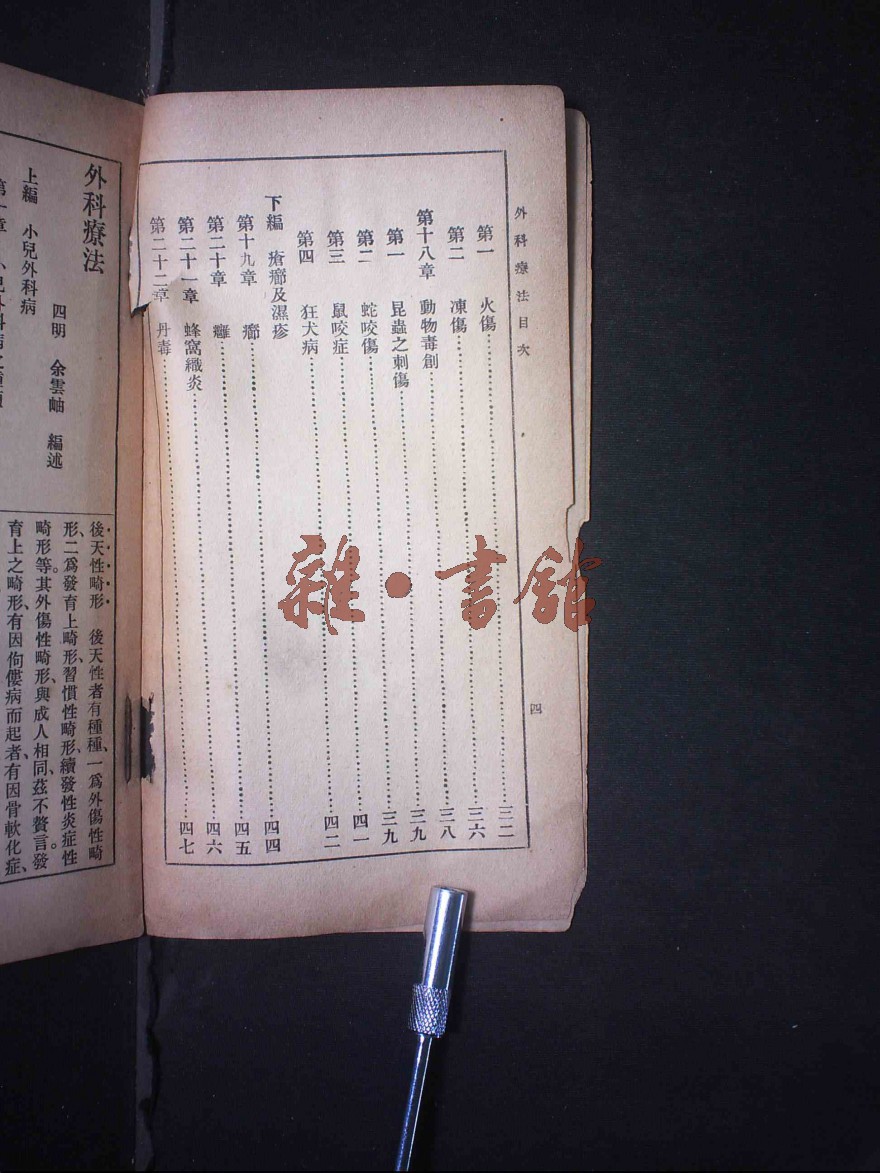 外科療法目次
四
第一 火傷……三二
第二 凍傷……三六
第十八章 動物毒創……三八
第一 昆蟲之刺傷……三九
第二 蛇咬傷……三九
第三 鼠咬症……四一
第四 狂犬病……四二
下編 瘡癤及濕疹
第十九章 癤……四四
第二十章 癰……四五
第二十一章 蜂窩織炎……四六
第二十二章 丹毒……四七
外科療法
四明 余雲岫 編述
上編 小兒外科病
後天性畸形 後天性者有種種、一爲外傷性畸
形、二爲發育上畸形、習慣性畸形、續發性炎症性
畸形等。其外傷性畸形、與成人相同、茲不贅言。發
育上之畸形、有因佝僂病而起者、有因骨軟化症、
雜·書館